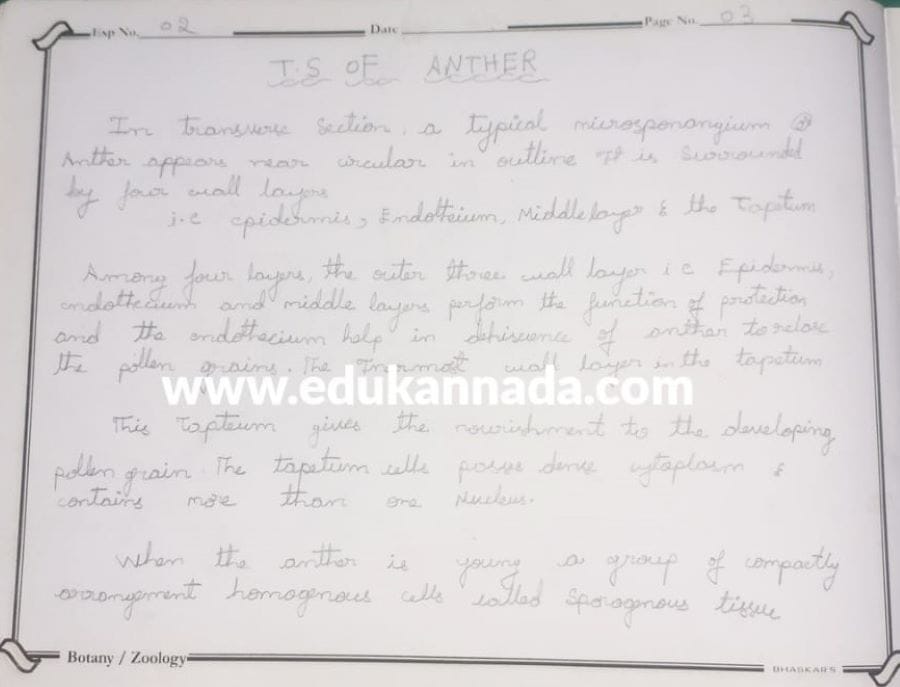 Exp No. 02 Date Page No. 03
T.S OF ANTHER
In transverse section, a typical microsporangium of
Anther appears near circular in outline It is surrounded
by four wall layers
i.e epidermis, Endotheium, Middle layer & the Tapetum
Among four layers, the outer three wall layer i e Epidermis,
endothecium and middle layers perform the function of protection
and the endothecium help in dehiscence of anther to relase
the pollen grains. The Innermost wall layer in the tapetum
www.edukannada.com
This Tapteum gives the nourishment to the developing
pollen grain. The tapetum cells posses dence cytoplasm &
contains more than one Nucleus.
When the anther is young a group of compactly
arrangement homogenous cells called Sporogenous tissue
Botany / Zoology BHASKAR'S